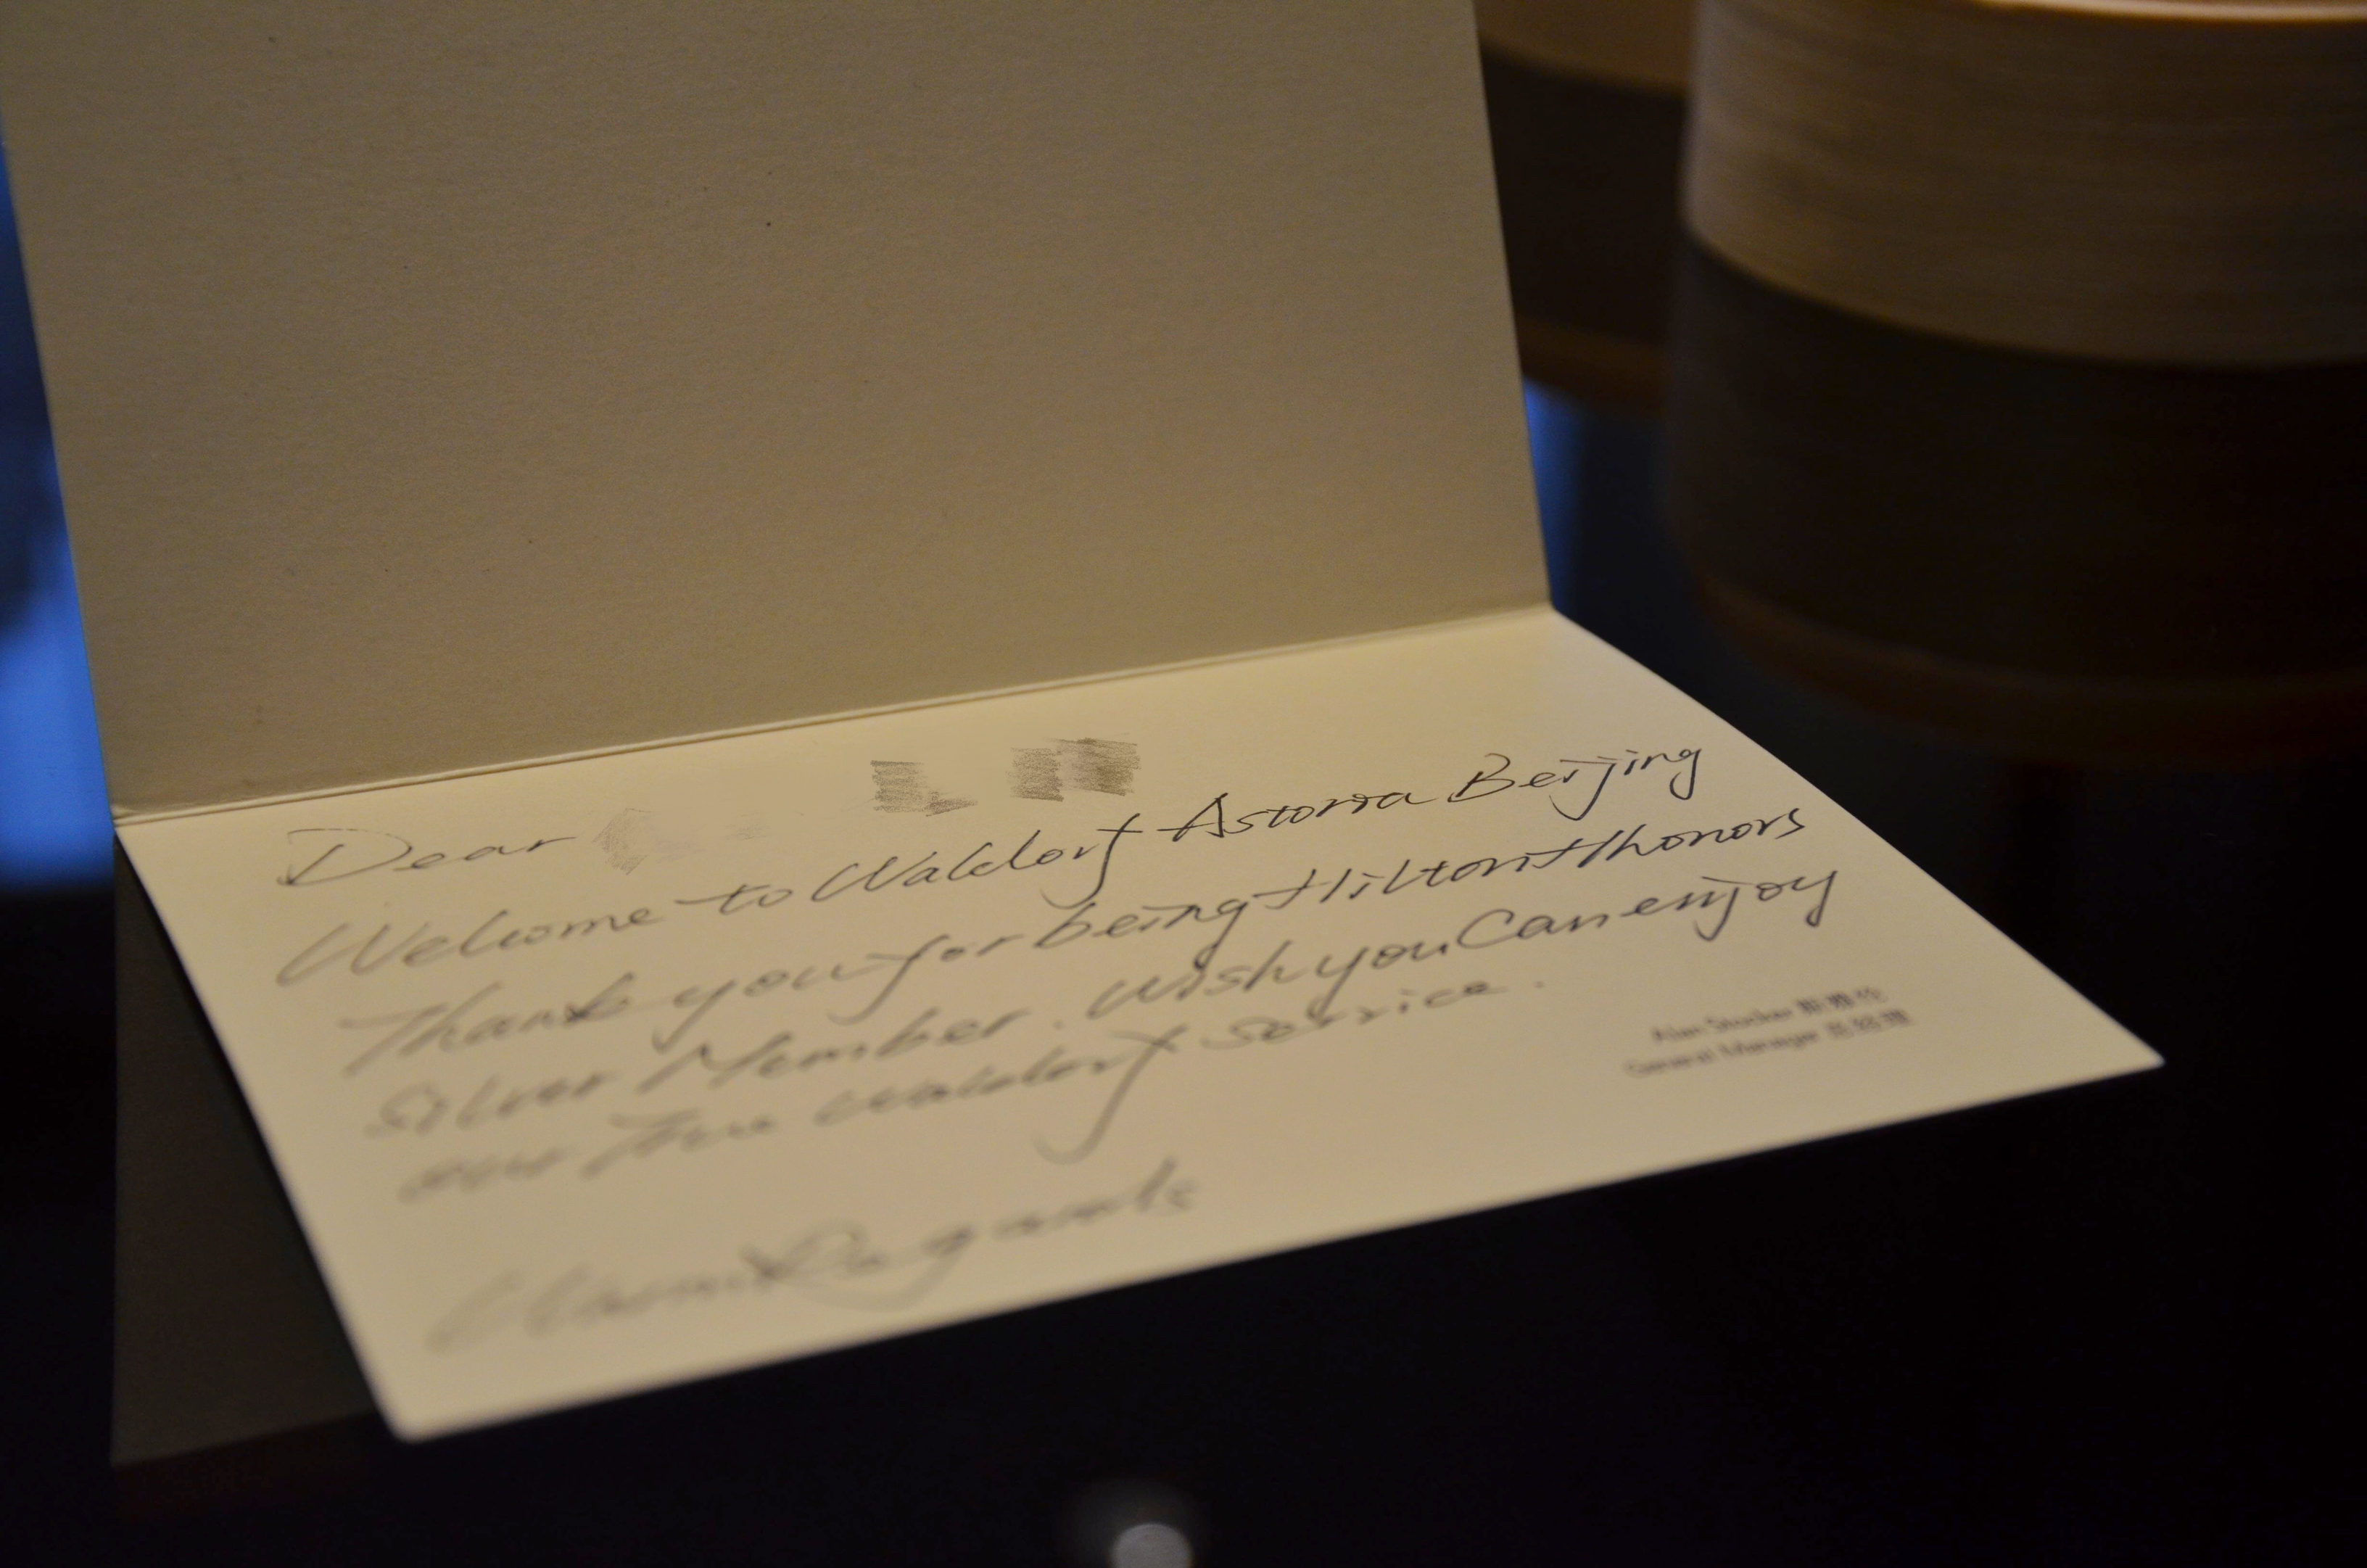 Dear
Welcome to Waldorf Astoria Beijing
Thank you for being Hilton Hhonors
Silver Member. Wish you Can enjoy
our True Waldorf Service.
Warm Regards
Alan Stocker
General Manager 总经理